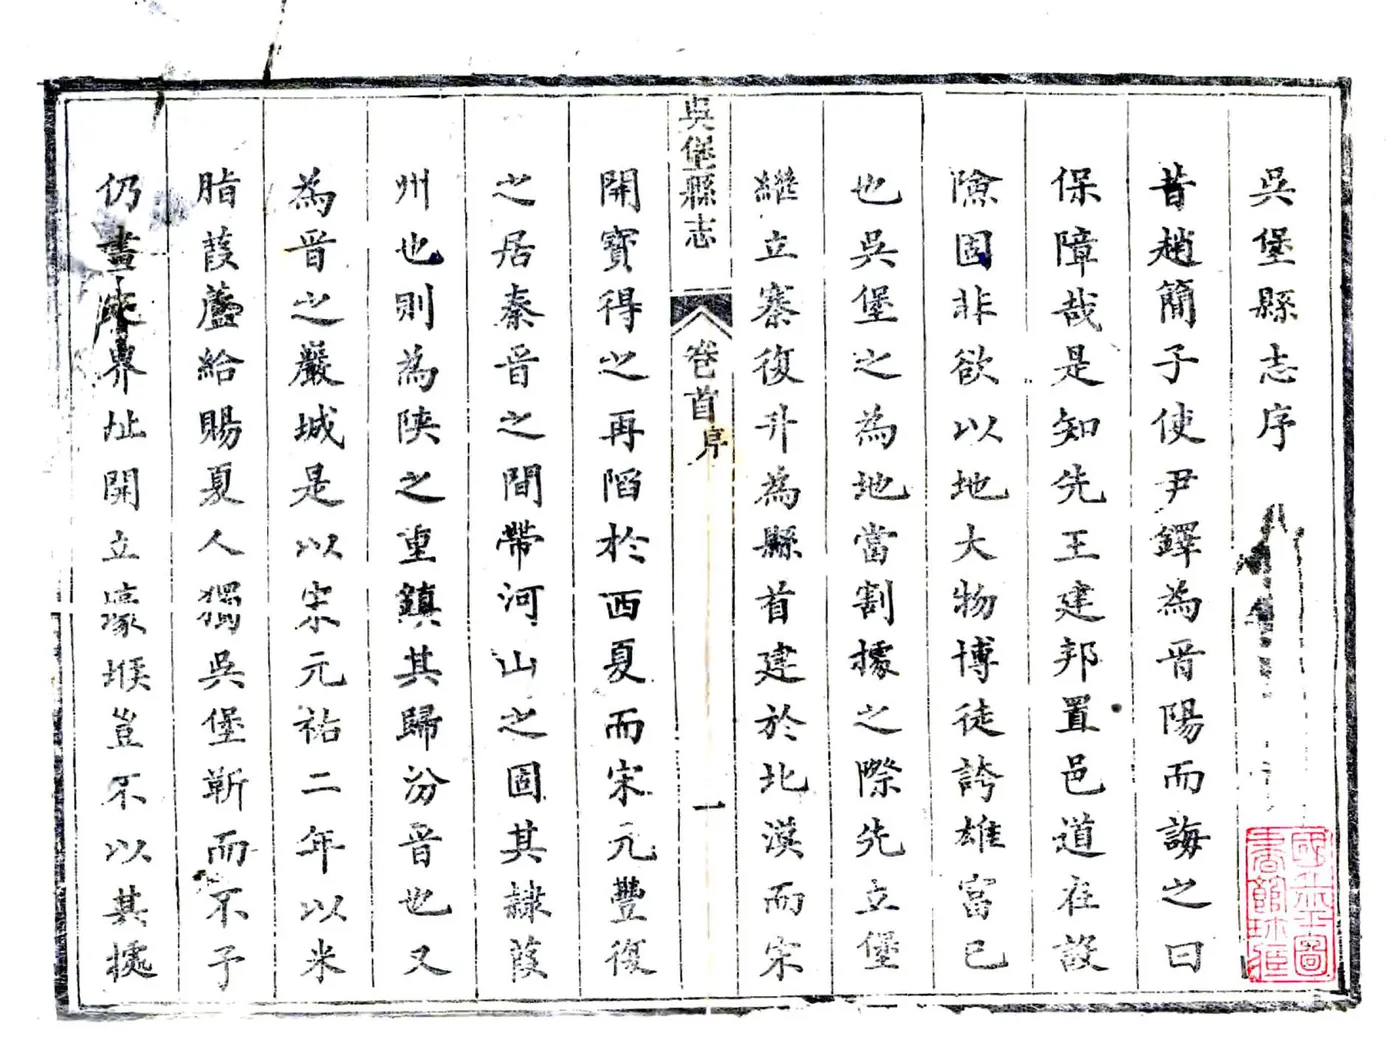 吳堡縣志序
昔趙簡子使尹鐸為晉陽而誨之曰
保障哉是知先王建邦置邑道在設
險固非欲以地大物博徒誇雄富已
也吳堡之為地當割據之際先立堡
繼立寨復升為縣首建於北漠而宋
吳堡縣志
卷首序
一
開寶得之再陷於西夏而宋元豐復
之居秦晉之間帶河山之固其隸葭
州也則為陝之重鎮其歸汾晉也又
為晉之嚴城是以宋元祐二年以米
脂葭蘆給賜夏人獨吳堡靳而不予
仍畫界址開立壕堠豈不以其據